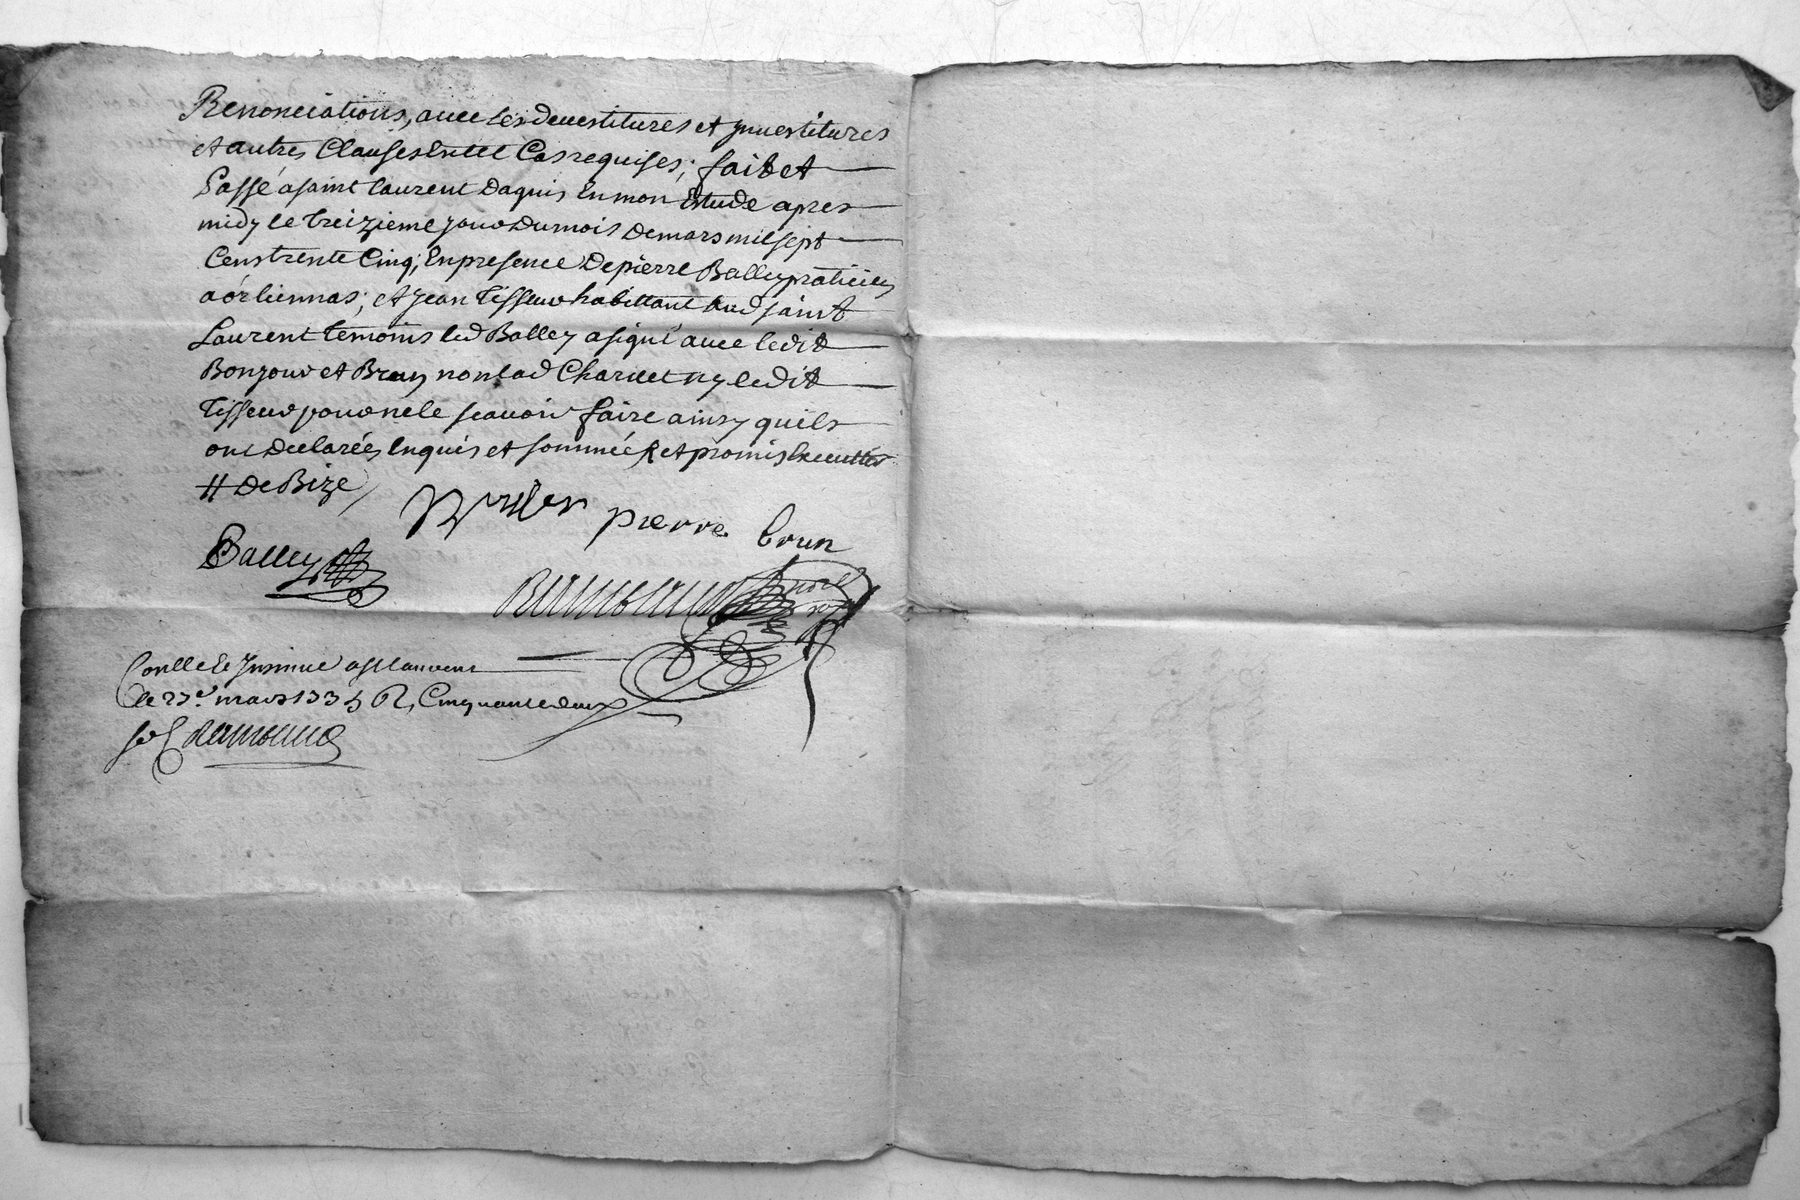 Renonciations, avec les devestitures et ynvestitures
et autres Clauses En tel Cas requises; fait et
Passé a saint Laurent Daguis En mon Etude apres
midy le treizieme jour Du mois De mars mil sept
Cens trente Cinq, En presence De pierre Balley praticien
a orliennas; et Jean Tisseur habittant dud saint
Laurent temoins led Balley a signé avec ledit
Bonjour et Brun non lad Charvet ny ledit
Tisseur pour ne le scavoir faire ainsy quils
ont Declarées Enquis et sommées et promis Executter
// De Bize
pierre brun
Balley
Con.llé & Insinué a St Laurent
le 23e mars 1735 R, Cinquante deux